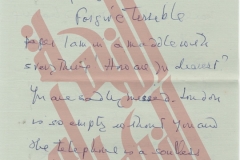 Forgive terrible
paper I am in a muddle with
everything How are you dearest?
You are sadly missed. London
is so empty without you and
the telephone is a soulless